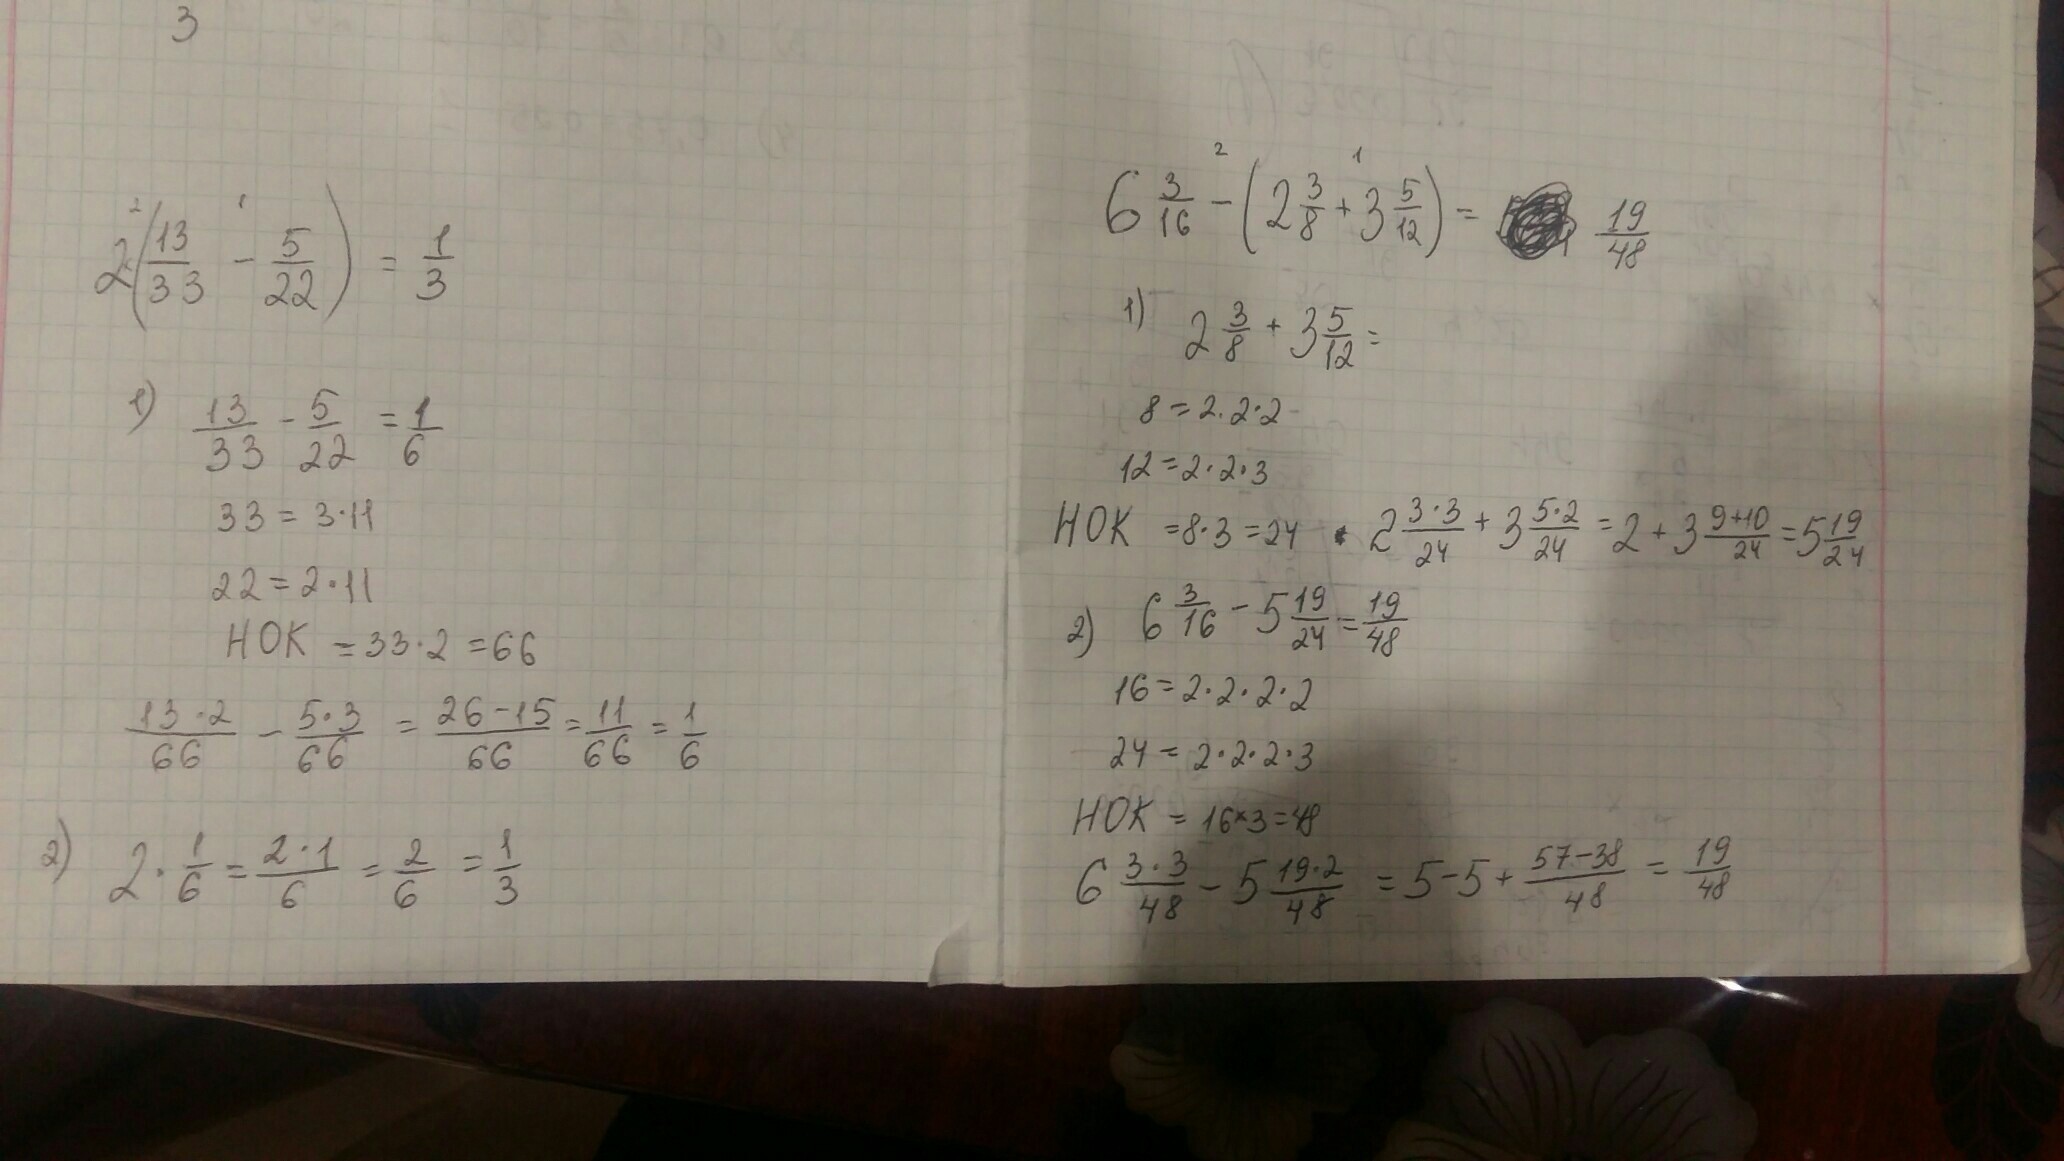 3
2 1
2(13/33 - 5/22) = 1/3
1) 13/33 - 5/22 = 1/6
33 = 3·11
22 = 2·11
НОК = 33·2 = 66
13·2/66 - 5·3/66 = 26-15/66 = 11/66 = 1/6
2) 2·1/6 = 2·1/6 = 2/6 = 1/3
2 1
6 3/16 - (2 3/8 + 3 5/12) = 19/48
1) 2 3/8 + 3 5/12 =
8 = 2·2·2
12 = 2·2·3
НОК = 8·3 = 24 2 3·3/24 + 3 5·2/24 = 2 + 3 9+10/24 = 5 19/24
2) 6 3/16 - 5 19/24 = 19/48
16 = 2·2·2·2
24 = 2·2·2·3
НОК = 16×3 = 48
6 3·3/48 - 5 19·2/48 = 5-5 + 57-38/48 = 19/48